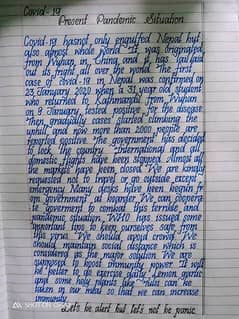 Covid-19
Present Pandemic Situation
Covid-19 hasnot only engulfed Nepal but
also almost whole world. It was originated
from Wuhan, in China, and it has laid
out its fright all over the world. The first
case of covid-19 in Nepal was confirmed on
23 January 2020 when a 31 year old student
who returned to Kathmandu from Wuhan
on 9 January, tested positive for the disease
Then gradually cases started climbing the
uphill and now more than 2000 people are
reported positive. The government has decided
to lock the country. International and all
domestic flights have been stopped. Almost all
the markets have been closed. We are kindly
requested not to travel or go outside except
emergency. Many desks have been begun
from government at boarder. We can cooperate
government to combat this terrible and
pandemic situation. WHO has issued some
important tips to keep ourselves safe from
this virus. We should avoid crowd. We
should maintain social distance which is
considered as the major solution. We are
supposed to boost immunity power. It will
be better to do exercise daily. Lemon, garlic
and some holy plants like Tulsi can be
taken in our meal so that we can increase
immunity.
Let's be alert but let's not be panic.